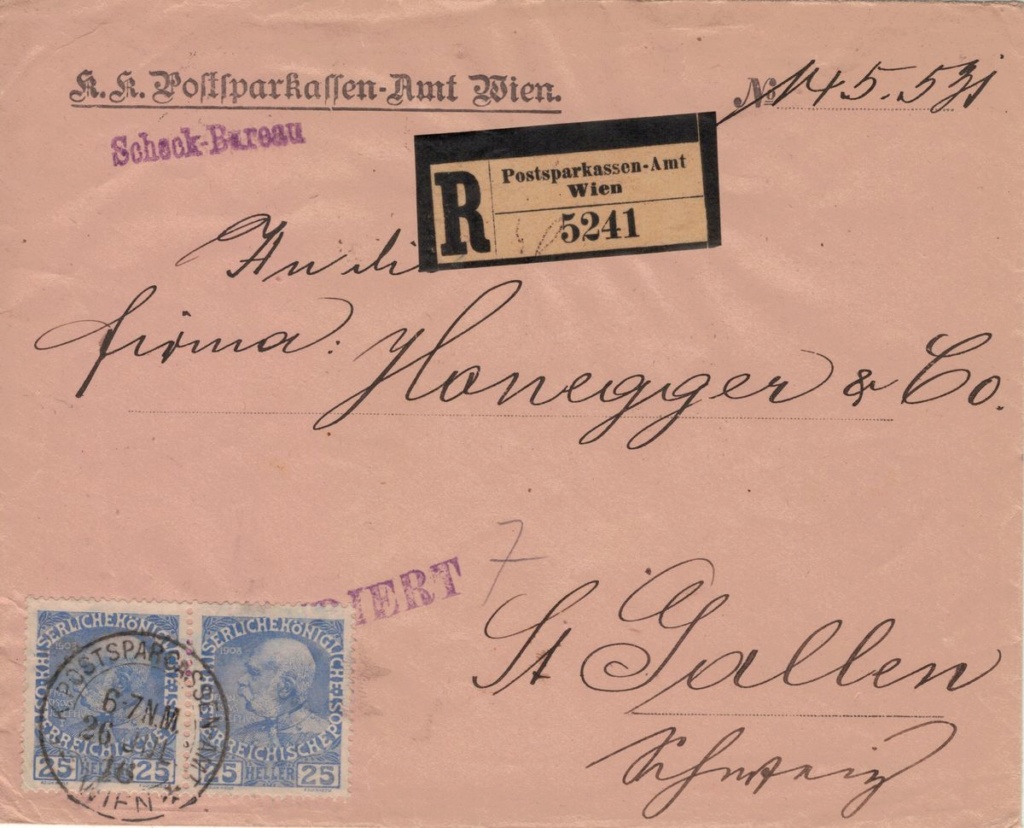 K. K. Postsparkassen-Amt Wien.
№ 145.531
Scheck-Bureau
R
Postsparkassen-Amt
Wien
5241
An die
Firma: Honegger & Co.
7
RIERT
St Gallen
Schweiz
KAISERLICHE KÖNIGLICHE ÖSTERREICHISCHE POST
1908
25 HELLER 25
KAISERLICHE KÖNIGLICHE ÖSTERREICHISCHE POST
1908
25 HELLER 25
POSTSPARCASSEN-AMT
6-7 N.M.
26
WIEN